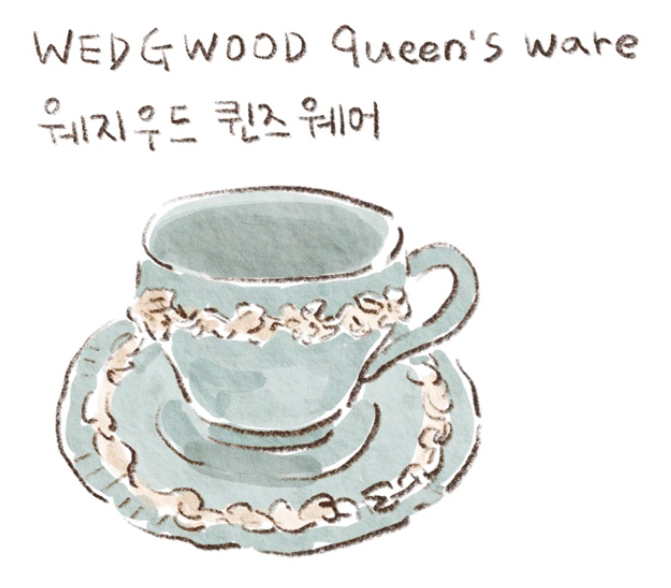 WEDGWOOD queen's ware
웨지우드 퀸즈웨어